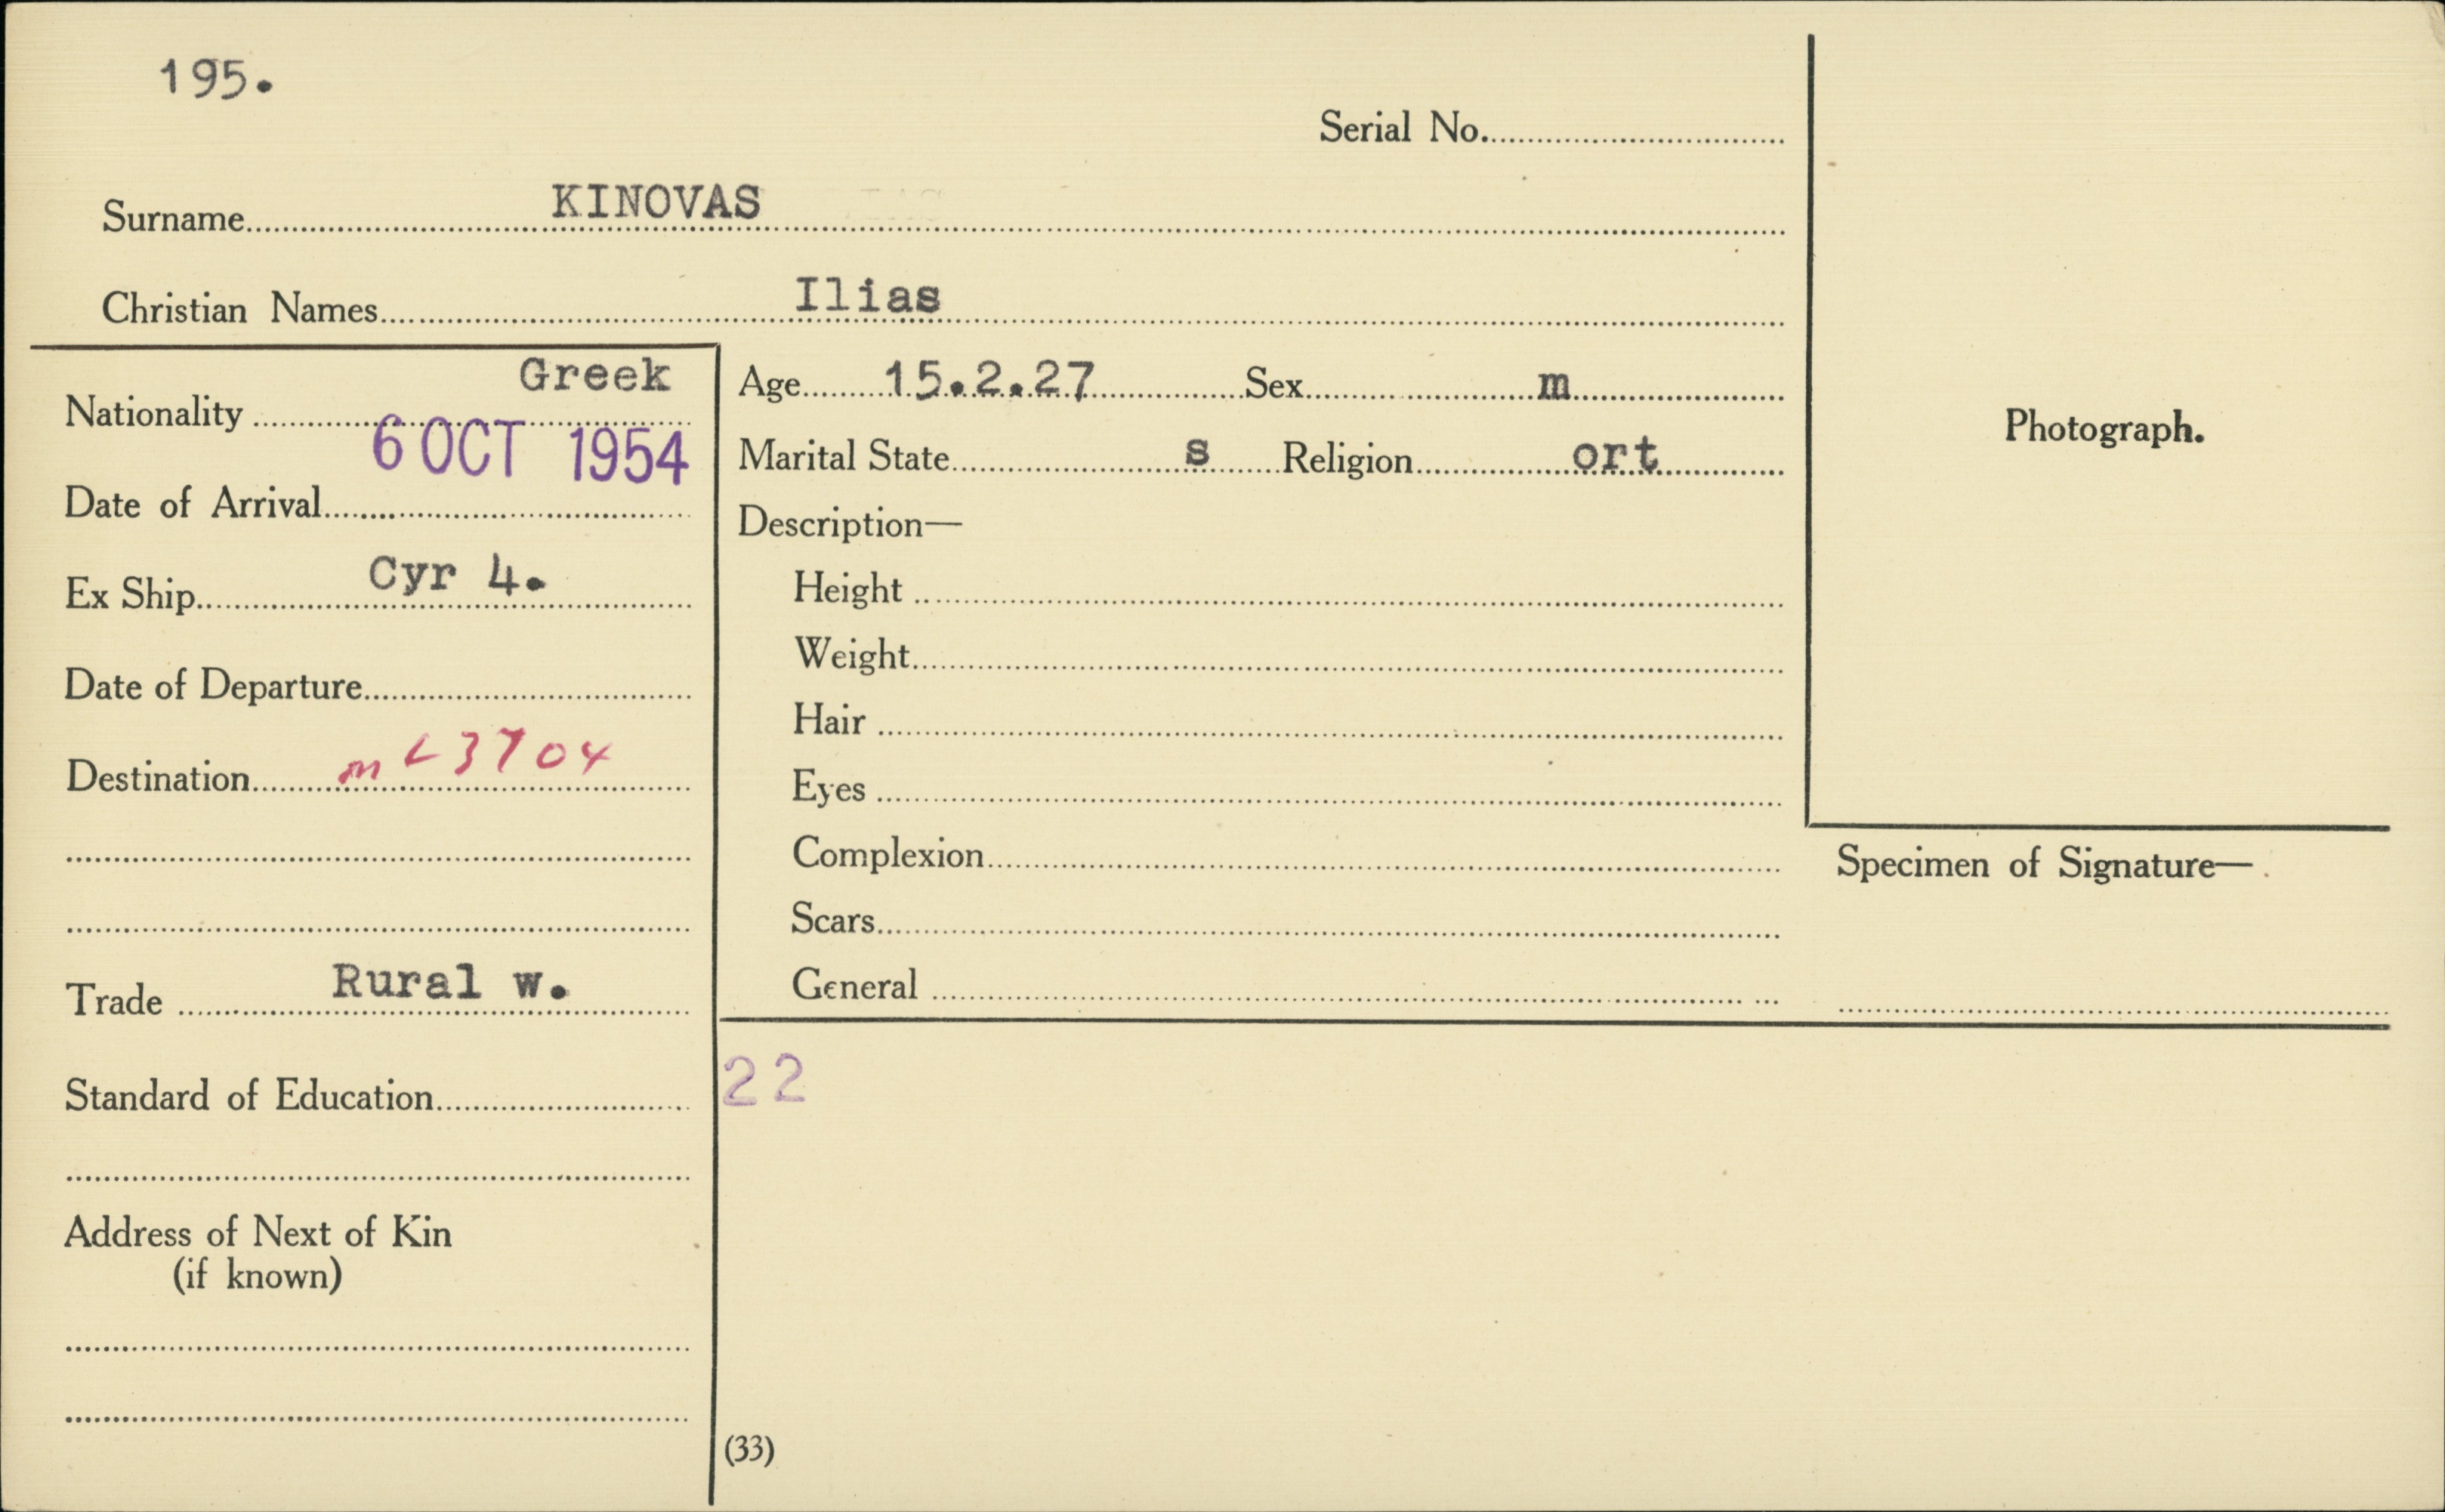 195.
Serial No.
Surname KINOVAS
Christian Names Ilias
Nationality Greek
Date of Arrival 6 OCT 1954
Ex Ship Cyr 4.
Date of Departure
Destination m L3704
Trade Rural w.
Standard of Education
Address of Next of Kin
(if known)
Age 15.2.27 Sex m
Marital State s Religion ort
Description—
Height
Weight
Hair
Eyes
Complexion
Scars
General
Photograph.
Specimen of Signature—
22
(33)